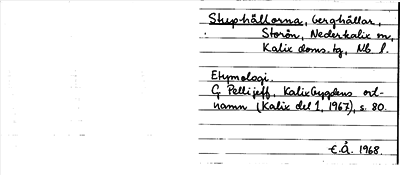 Skephällorna, berghällar,
Storön, Nederkalix sn,
Kalix doms.tg, Nb l.
Etymologi.
G Pellijeff, Kalixbygdens ort-
namn (Kalix del 1, 1967), s. 80.
E.Å. 1968.